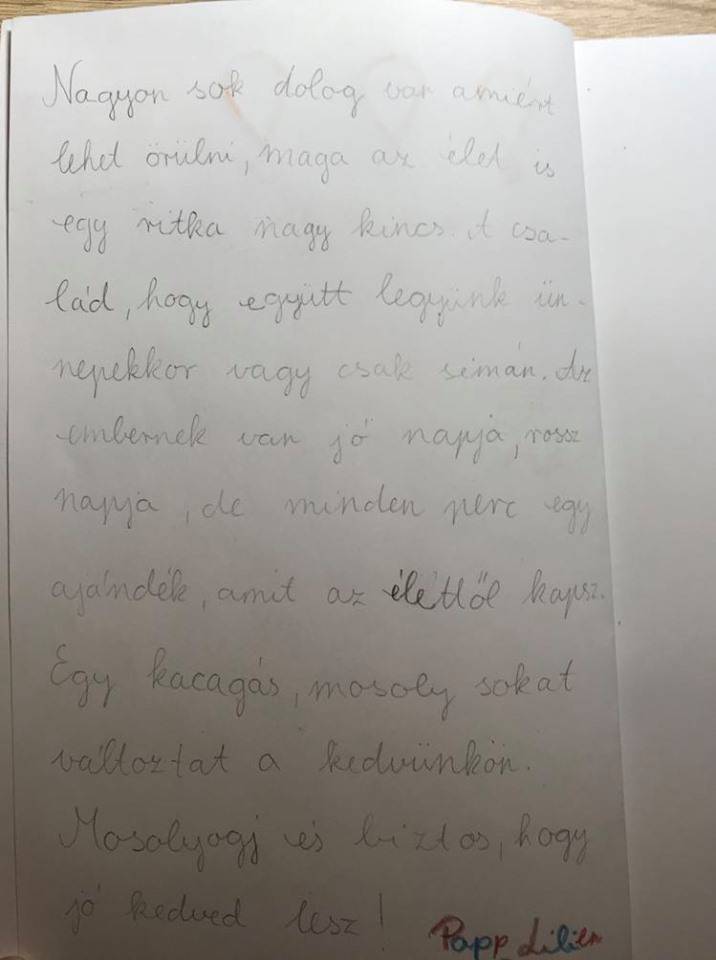 Nagyon sok dolog van amiért
lehet örülni, maga az élet is
egy ritka nagy kincs. A csa-
lád, hogy együtt legyünk ün-
nepekkor vagy csak simán. Az
embernek van jó napja, rossz
napja, de minden perc egy
ajándék, amit az élettől kapsz.
Egy kacagás, mosoly sokat
változtat a kedvünkön.
Mosolyogj és biztos, hogy
jó kedved lesz!
Papp Lilien